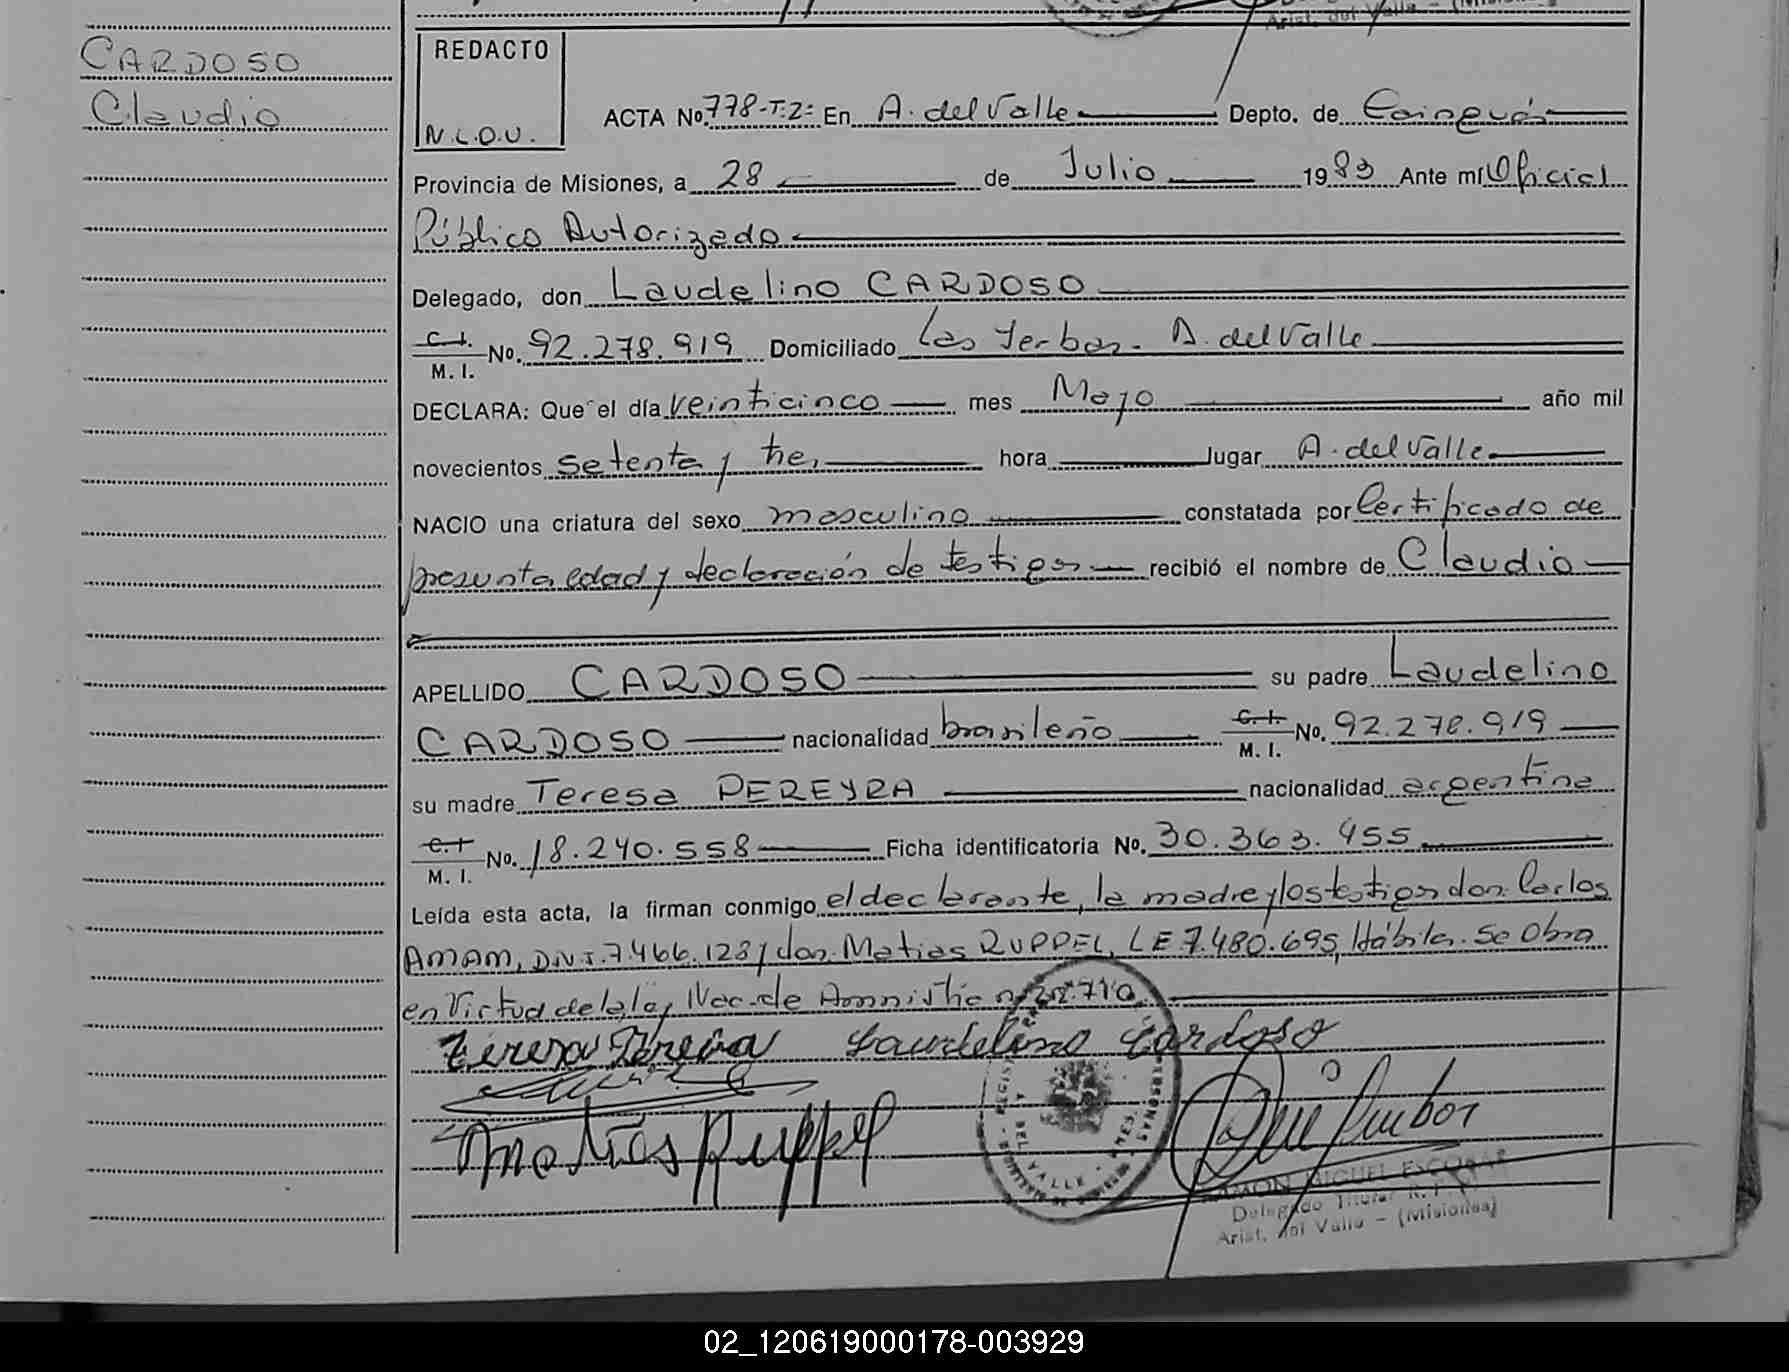 Arist. del Valle - (Misiones)
CARDOSO
Claudio
REDACTO
N.L.O.U.
ACTA No. 778-T.2= En A. del Valle Depto. de Cainguás
Provincia de Misiones, a 28 de Julio 1983 Ante mí Oficial
Público Autorizado
Delegado, don Laudelino CARDOSO
C.I. M.I. No. 92.278.919 Domiciliado Las Yerbas. A. del Valle
DECLARA: Que el día veinticinco mes Mayo año mil
novecientos setenta y tres hora lugar A. del Valle
NACIO una criatura del sexo masculino constatada por Certificado de
presunta edad y declaración de testigos recibió el nombre de Claudio
APELLIDO CARDOSO su padre Laudelino
CARDOSO nacionalidad brasileño C.I. M.I. No. 92.278.919
su madre Teresa PEREYRA nacionalidad argentina
C.I M.I. No. 18.240.558 Ficha identificatoria No. 30.363.455
Leída esta acta, la firman conmigo el declarante, la madre y los testigos don Carlos
AMAM, DNI.7.466.123 y don Matias RUPPEL, LE 7.480.695, Hábiles. Se Obra
en Virtud de la ley Nac. de Amnistia nº 22.710
Teresa Pereira Laudelino Cardoso
Matias Ruppel
A DEL VALLE
RAMON MIGUEL ESCOBAR
Delegado Titular R.P.
Arist. del Valle - (Misiones)
02_120619000178-003929